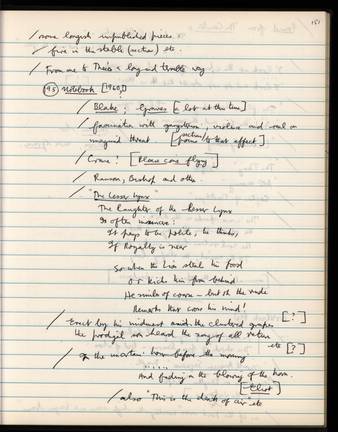 151
/ some largish unpublished pieces.
/ fire in the stable (section) etc.
/ From me to There's a long and terrible way
(43) Notebook [1960?]
/ Blake; Graves [a lot at this time]
/ fascination with gangsterism, violence and
imagined threat. [poems to that effect]
sections
/ Crane! [
/ Ransom, Bishop and others
/ "The Lesser Lynx"
The laughter of the lesser Lynx
Is often insincere:
It pays to be polite, he thinks,
If Royalty is near
So when the Lion steals his food
Or kicks him from behind
He smiles of course – but oh the rude
Remarks that cross his mind!
[?]
/ Erect by his midmost amid the clustered grapes
the prodigal son heard the song of all
etc [?]
/ In the uncertain hour before the morning
......
And fading on the blowing of the horn.
[Eliot]
/ also "This is the death of air" etc